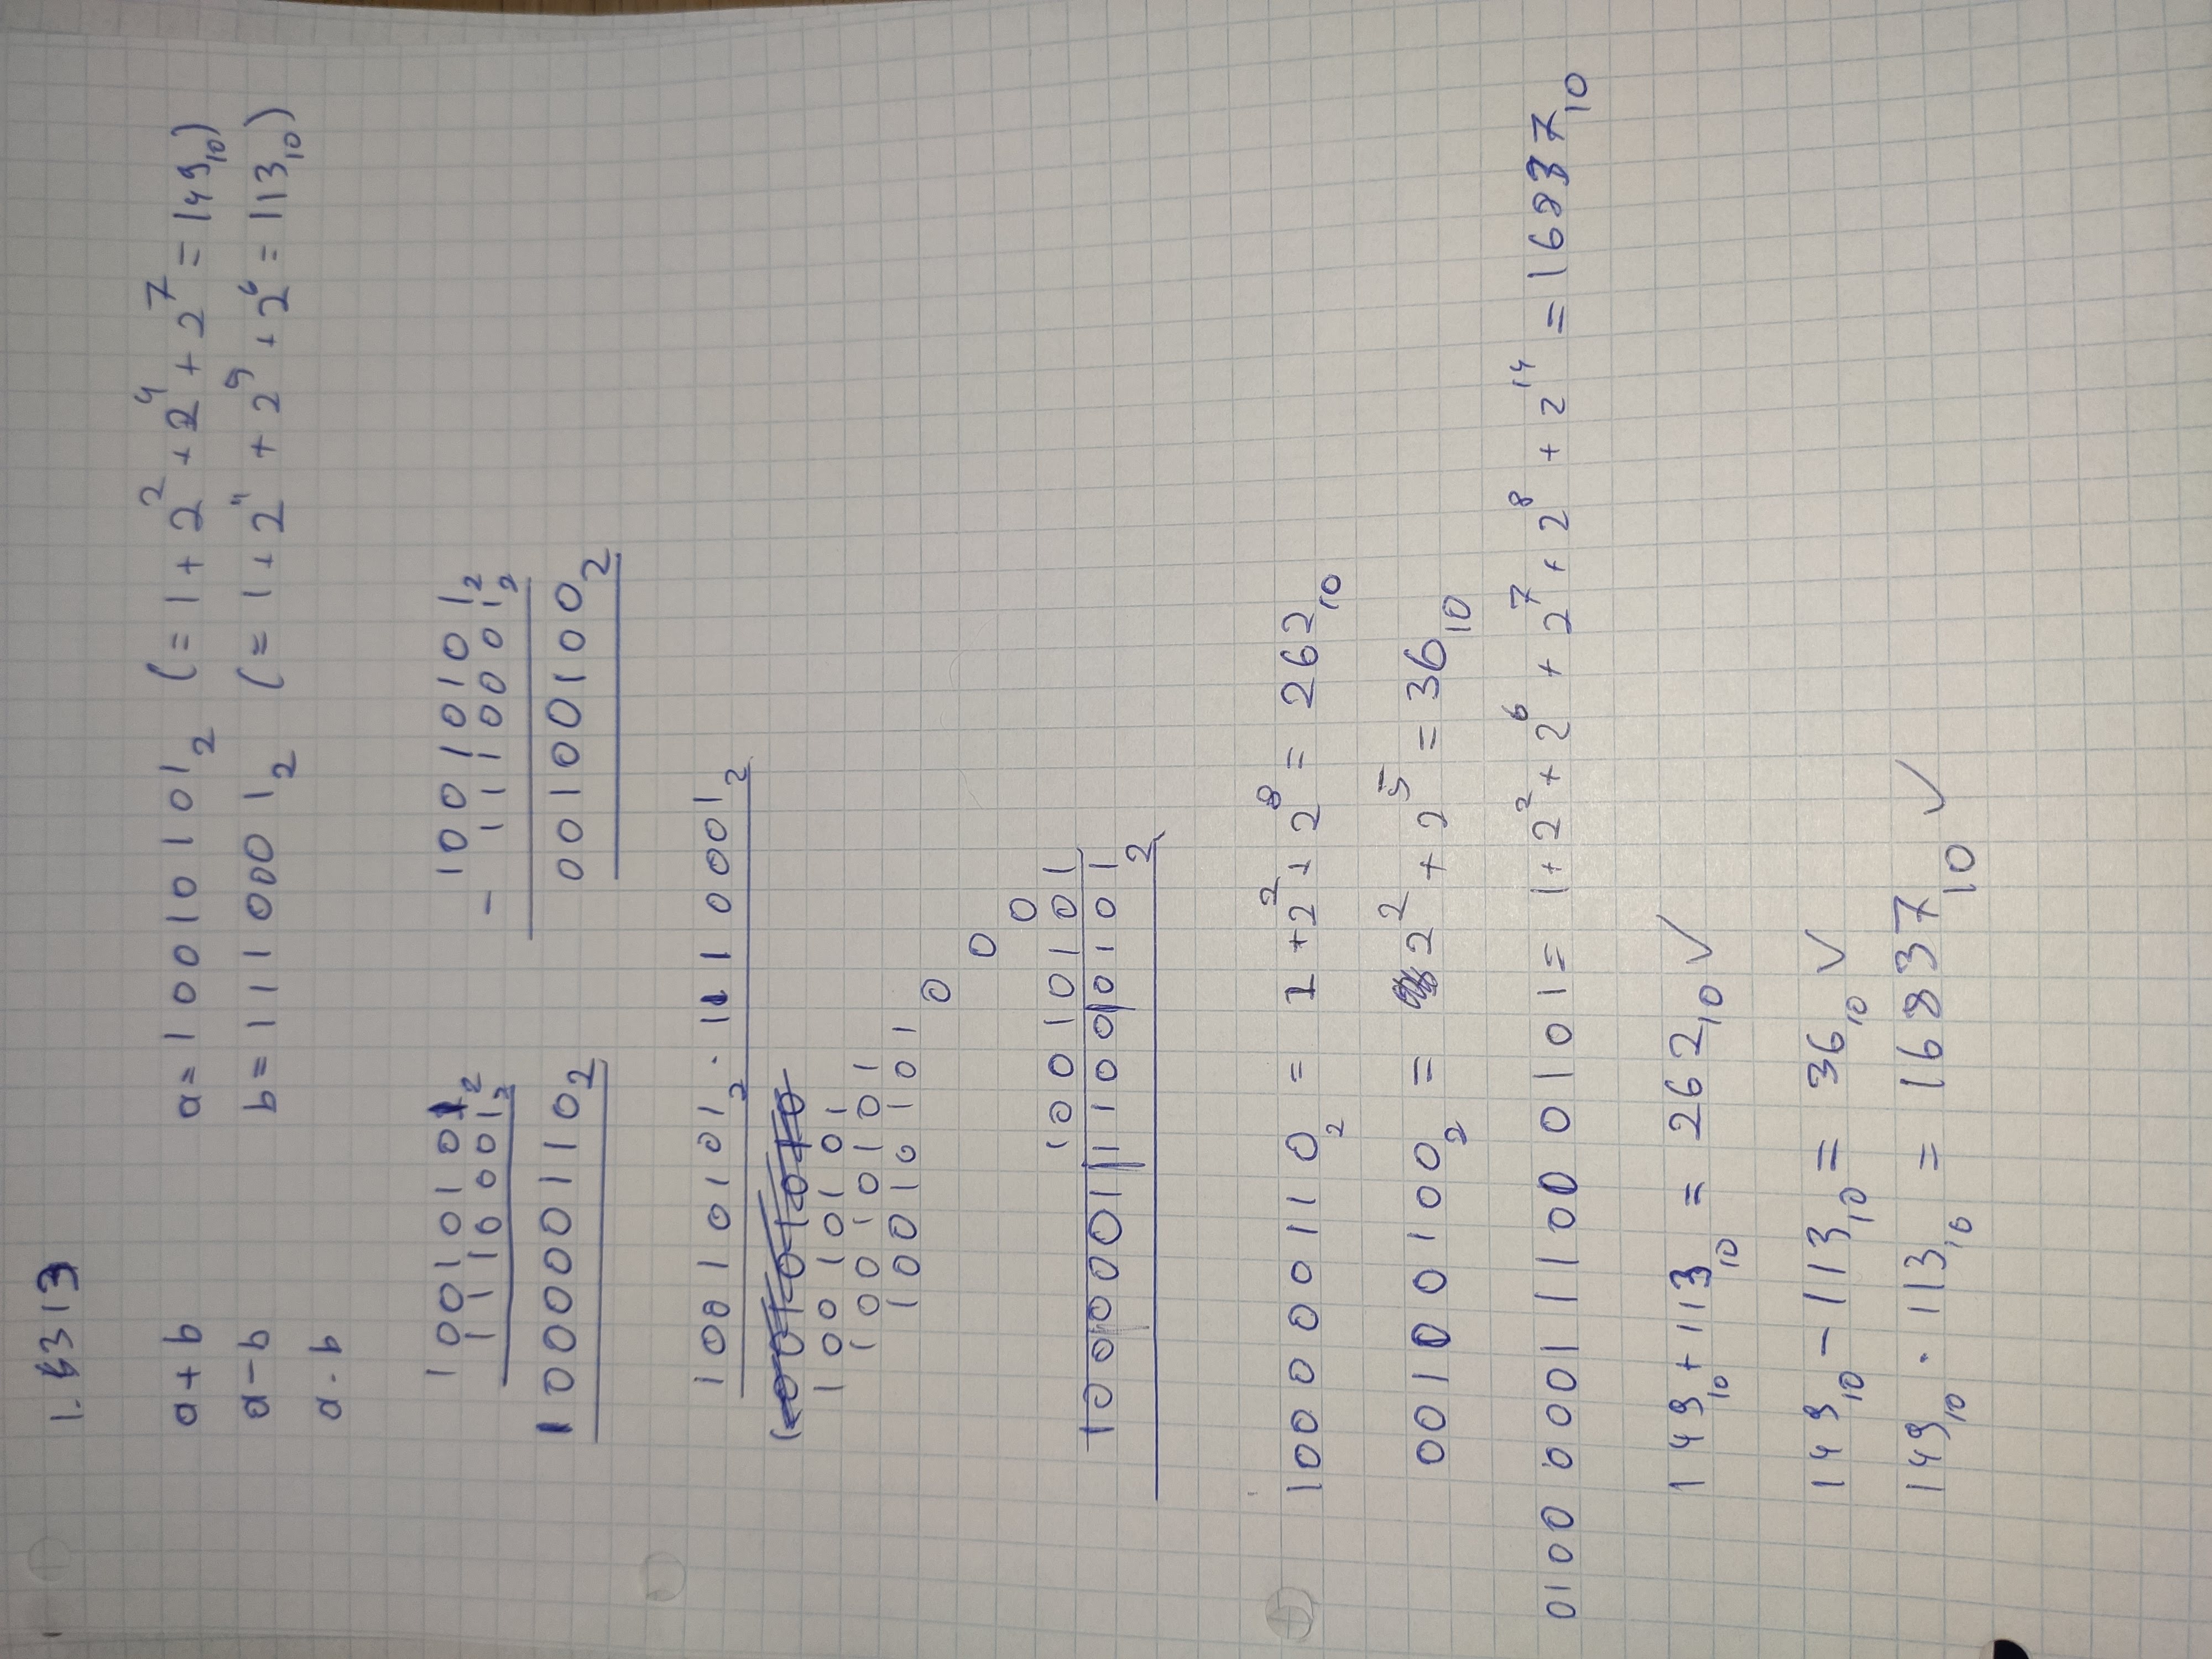 1. 6313
a + b a = 10010101₂ (= 1 + 2² + 2⁴ + 2⁷ = 149₁₀)
a - b b = 1110001₂ (= 1 + 2⁴ + 2⁵ + 2⁶ = 113₁₀)
a · b
10010101₂ 10010101₂
1110001₂ - 1110001₂
100000110₂ 00100100₂
10010101₂ · 1110001₂
10010101
10010101
10010101
0
0
0
10010101
100000111000101₂
100000110₂ = 2 + 2² + 2⁸ = 262₁₀
00100100₂ = 2² + 2⁵ = 36₁₀
0100 0001 1100 0101 = 1 + 2² + 2⁶ + 2⁷ + 2⁸ + 2¹⁴ = 16837₁₀
149₁₀ + 113₁₀ = 262₁₀ ✓
149₁₀ - 113₁₀ = 36₁₀ ✓
149₁₀ · 113₁₀ = 16837₁₀ ✓